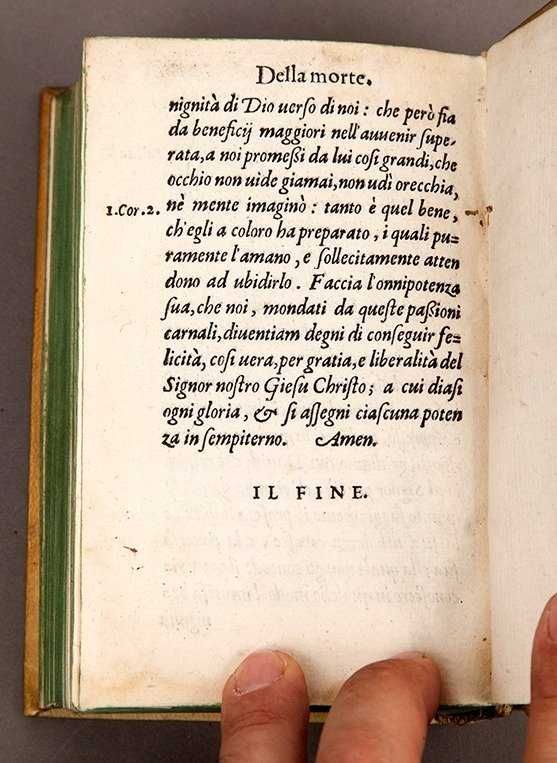 Della morte.
nignità di Dio uerso di noi : che però fia
da beneficij maggiori nell'auuenir ſupe-
rata, a noi promeßi da lui coſi grandi, che
occhio non uide giamai, non udì orecchia,
1. Cor. 2. nè mente imaginò : tanto è quel bene,
ch'egli a coloro ha preparato, i quali pu=
ramente l'amano, e ſollecitamente atten
dono ad ubidirlo. Faccia l'onnipotenza
ſua, che noi, mondati da queſte paßioni
carnali, diuentiam degni di conſeguir fe=
licità, coſi uera, per gratia, e liberalità del
Signor noſtro Gieſu Chriſto; a cui diaſi
ogni gloria, & ſi aſſegni ciaſcuna poten
za in ſempiterno. Amen.
IL FINE.